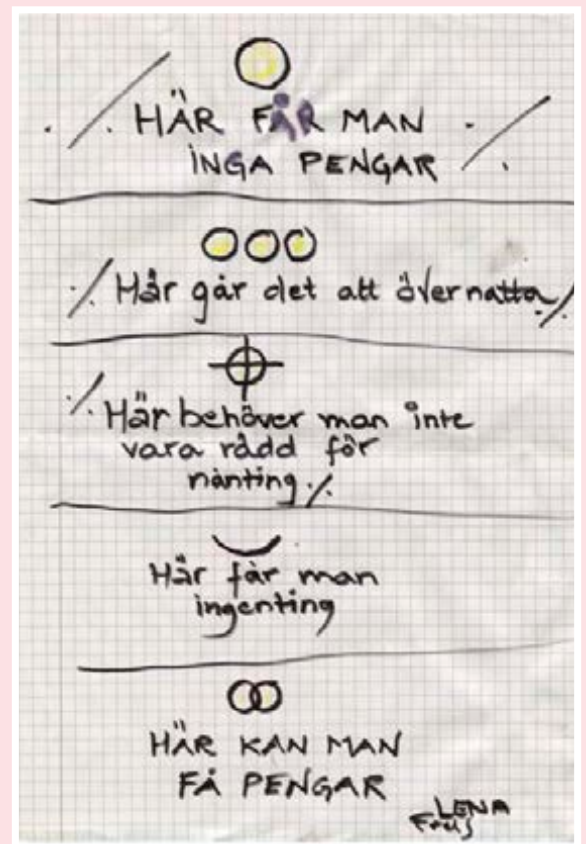 HÄR FÅR MAN
INGA PENGAR
Här går det att övernatta
Här behöver man inte
vara rädd för
nånting
Här får man
ingenting
HÄR KAN MAN
FÅ PENGAR
LENA